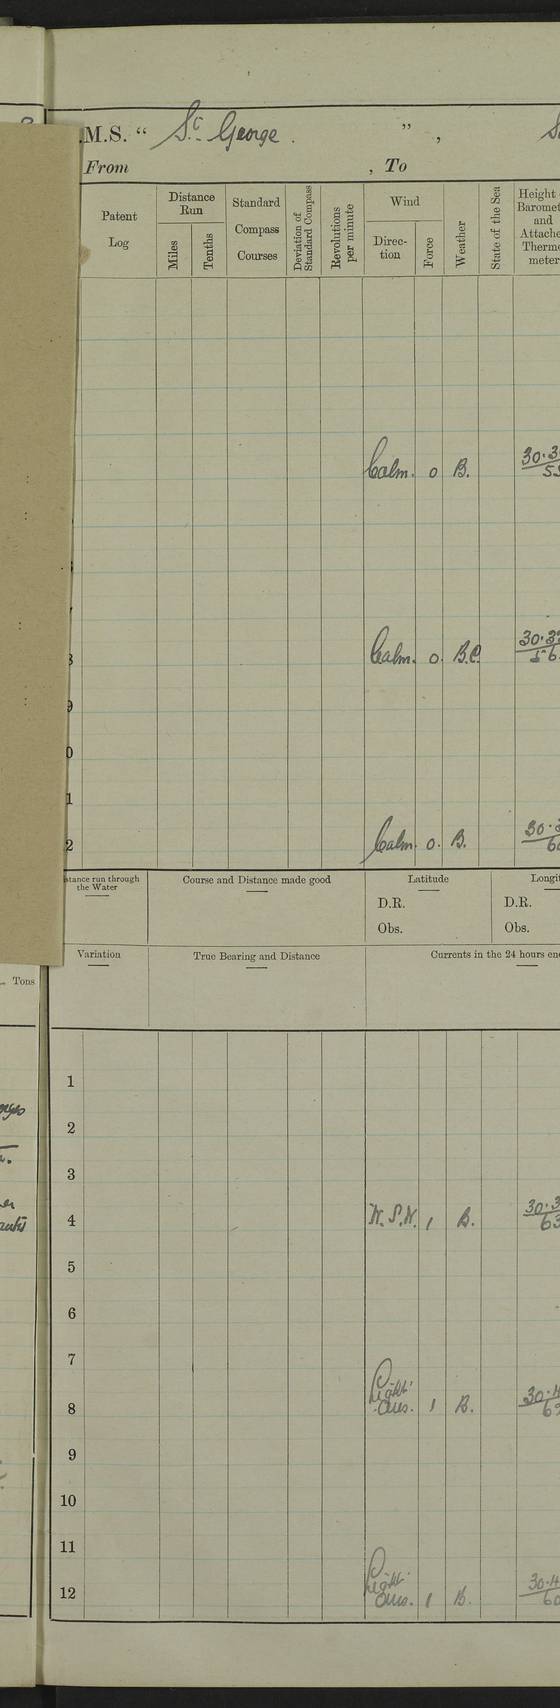 M.S. “ St. George . ” ,
From , To
Patent Log
Distance Run
Miles
Tenths
Standard Compass Courses
Deviation of Standard Compass
Revolutions per minute
Wind
Direc-
tion
Force
Weather
State of the Sea
Height
Baromet
and
Attache
Thermo
meter
Calm. 0 B. 30.3
Calm. 0. B.C. 30.3
56
8
9
0
1
2 Calm. 0. B. 30.
stance run through
the Water
Course and Distance made good
Latitude
D.R.
Obs.
Longit
D.R.
Obs.
Variation
True Bearing and Distance
Currents in the 24 hours en
Tons
1
2
3
4 W.S.W. 1 B. 30.3
63
5
6
7
8 Light airs. 1 B. 30.4
9
10
11
12 Light airs. 1 B. 30.4
60